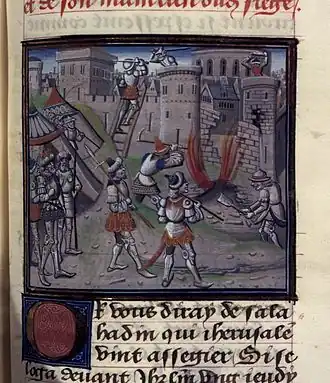 et de son maintien ou siege.
Or vous diray de sala
hadin qui iherusale
vint assegier Si se
loga deuant Ihrlm ung ieudy